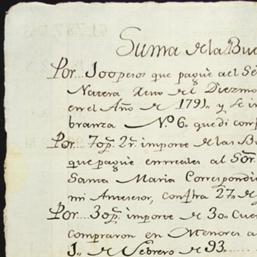 Suma de la Bue
Por... 300 pesos que paguè al Sè
Natera del Diezmo
en el Año de 1791. y se in
branza N.º 6. que di con
Por... 7 op.s 2 r.s importe de las B
que paguè en reales al Sõr.
Santa Maria Correspondi
mi Antesesor, consta 27 de
Por... 3 op.s importe de 30 Cue
Compraron en Menores a
1.º de Febrero de 93